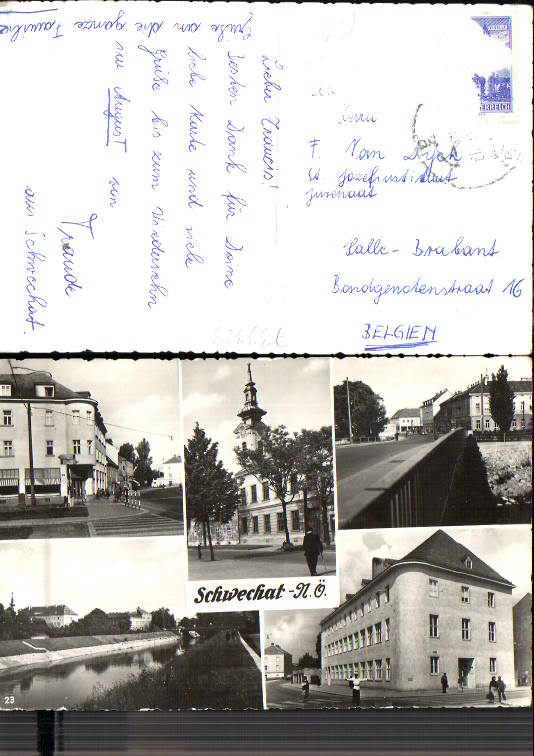 Lieber Francis!
Besten Dank für Deine
liebe Karte und viele
Grüße bis zum Wiedersehn
im August von
Traude
aus Schwechat.
Grüße an die ganze Familie
Herrn
F. Van Dyck
St. Jozefinstituut
Juvenaat
Halle - Brabant
Bondgenotenstraat 16
BELGIEN
ERREICH
Schwechat - N.Ö.
23